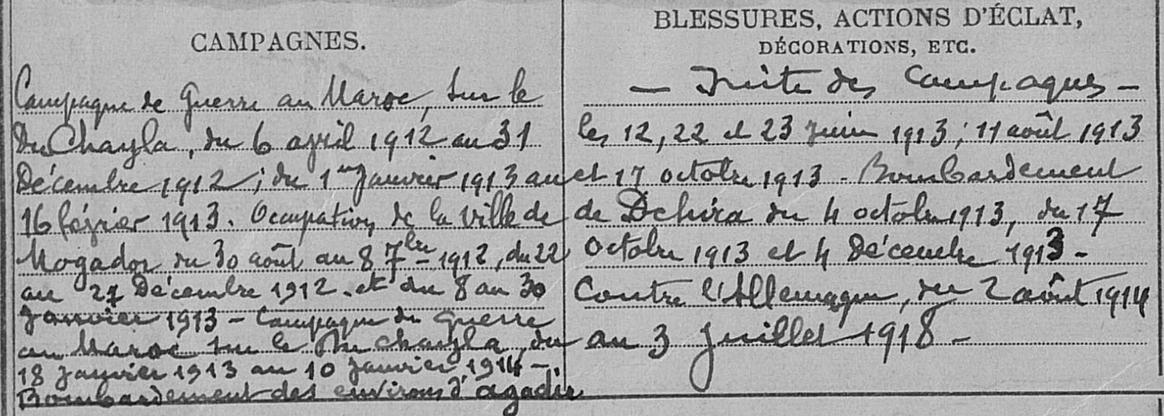 CAMPAGNES.
Campagne de Guerre au Maroc, sur le
Du Chayla, du 6 april 1912 au 31
Décembre 1912; du 1er Janvier 1913 au
16 février 1913. Occupation de la ville de
Mogador du 30 août au 8 7bre 1912, du 22
au 27 Décembre 1912. et du 8 au 30
Janvier 1913 - Campagne de Guerre
au Maroc sur le Du Chayla, du
18 Janvier 1913 au 10 Janvier 1914 -
Bombardement des environs d'agadir
BLESSURES, ACTIONS D'ÉCLAT,
DÉCORATIONS, ETC.
— Suite des Campagnes —
les 12, 22 et 23 juin 1913; 11 août 1913
et 17 octobre 1913 - Bombardement
de Dchira du 4 octobre 1913, du 17
Octobre 1913 et 4 Décembre 1913 -
Contre l'Allemagne, du 2 août 1914
au 3 Juillet 1918 -